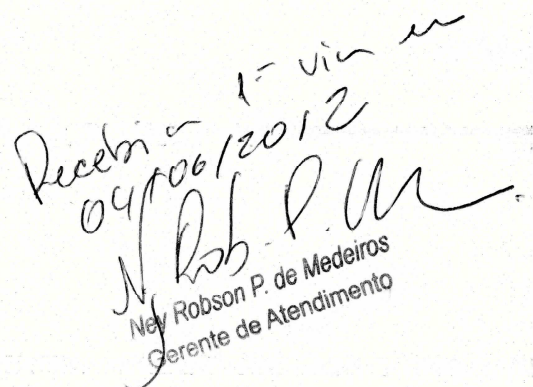 Recebi a 1ª via em
04/06/2012
N Rob. P. M
Ney Robson P. de Medeiros
Gerente de Atendimento